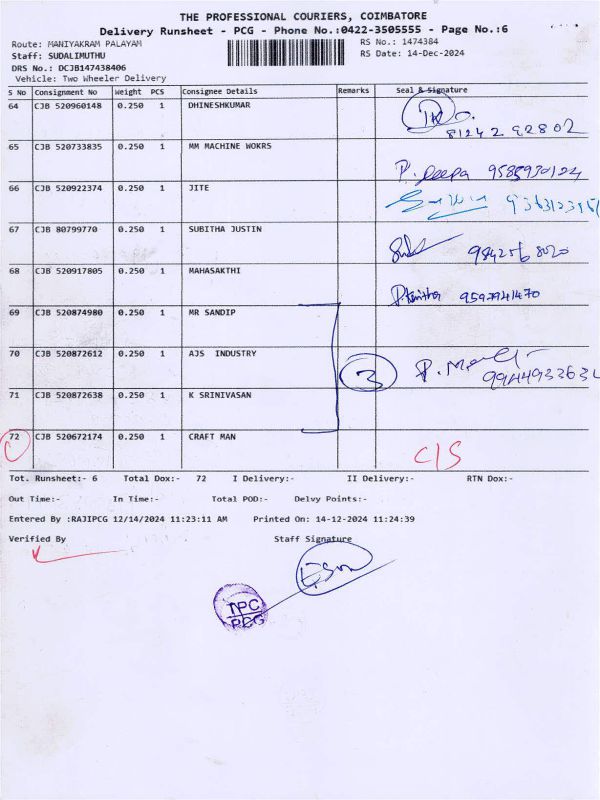 THE PROFESSIONAL COURIERS, COIMBATORE
Delivery Runsheet - PCG - Phone No.:0422-3505555 - Page No.:6
Route: MANIYAKRAM PALAYAM
RS No.: 1474384
Staff: SUDALIMUTHU
RS Date: 14-Dec-2024
DRS No.: DCJB147438406
Vehicle: Two Wheeler Delivery
S No Consignment No Weight PCS Consignee Details Remarks Seal & Signature
64 CJB 520960148 0.250 1 DHINESHKUMAR
81242 92802
65 CJB 520733835 0.250 1 MM MACHINE WOKRS
P. Deepa 9585930124
66 CJB 520922374 0.250 1 JITE
67 CJB 80799770 0.250 1 SUBITHA JUSTIN
984256 8020
68 CJB 520917805 0.250 1 MAHASAKTHI
9597941470
69 CJB 520874980 0.250 1 MR SANDIP
70 CJB 520872612 0.250 1 AJS INDUSTRY
3
71 CJB 520872638 0.250 1 K SRINIVASAN
72 CJB 520672174 0.250 1 CRAFT MAN
C/S
Tot. Runsheet:- 6 Total Dox:- 72 I Delivery:- II Delivery:- RTN Dox:-
Out Time:- In Time:- Total POD:- Delvy Points:-
Entered By :RAJIPCG 12/14/2024 11:23:11 AM Printed On: 14-12-2024 11:24:39
Verified By Staff Signature
TPC
PCG